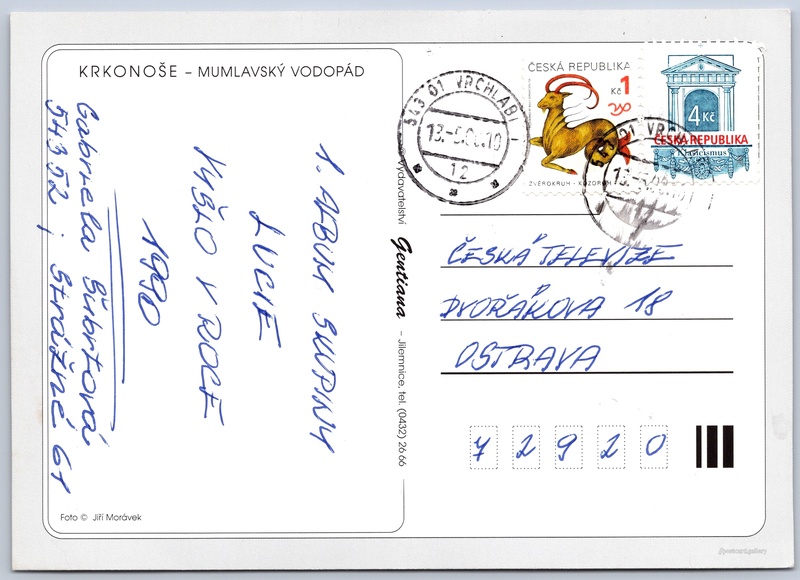 KRKONOŠE – MUMLAVSKÝ VODOPÁD
1. ALBUM SKUPINY
LUCIE
VYŠLO V ROCE
1990
Gabriela Šubrtová
543 52, Strážné 61
Foto © Jiří Morávek
Vydavatelství Gentiana – Jilemnice, tel. (0432) 26 66
543 01 VRCHLABÍ
12
ČESKÁ REPUBLIKA
1
Kč
ZVĚROKRUH - KOZOROH
4 Kč
ČESKÁ REPUBLIKA
Klasicismus
01 VRCH
ČESKÁ TELEVIZE
DVOŘÁKOVA 18
OSTRAVA
72920
@postcard.gallery